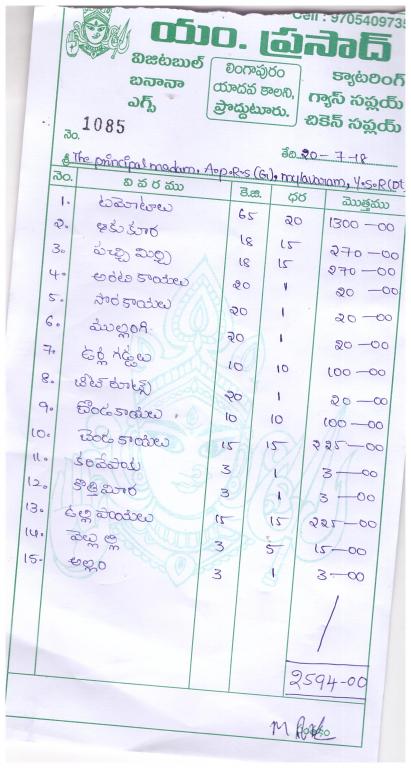 Cell : 970540973
యం. ప్రసాద్
విజిటబుల్
బనానా
ఎగ్స్
లింగాపురం
యాదవ కాలని,
ప్రొద్దుటూరు.
క్యాటరింగ్
గ్యాస్ సప్లయ్
చికెన్ సప్లయ్
నెం. 1085
తేది 20-7-18
శ్రీ The principal madam, A.P.R.S (G). mylavaram, Y.S.R (Dt
నెం. వివరము కె.జి. ధర మొత్తము
1. టమోటాలు 65 20 1300-00
2. ఆకుకూర 18 15 270-00
3. పచ్చిమిర్చి 18 15 270-00
4. అరటి కాయలు 20 1 20-00
5. సొరకాయలు 20 1 20-00
6. ముల్లంగి 20 1 20-00
7. ఉర్లగడ్డలు 10 10 100-00
8. బీట్ రూట్స్ 20 1 20-00
9. దొండకాయలు 10 10 100-00
10. బెండకాయలు 15 15 225-00
11. కరివేపాకు 3 1 3-00
12. కొత్తిమీర 3 1 3-00
13. ఉల్లిపాయలు 15 15 225-00
14. వెల్లుల్లి 3 5 15-00
15. అల్లం 3 1 3-00
2594-00